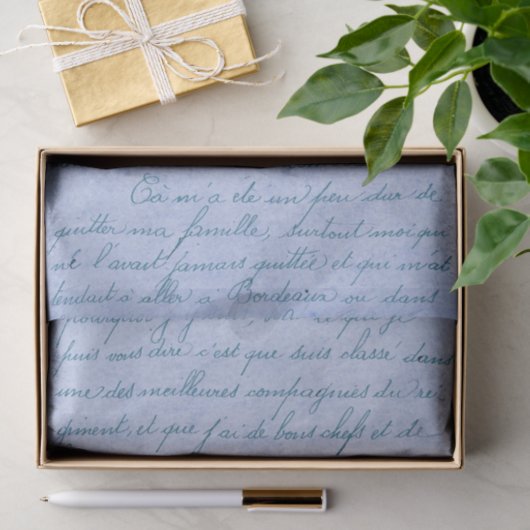 Cà m'a été un peu dur de
quitter ma famille, surtout moi qui
né l'avait jamais quittée et qui m'at
tendait à aller à Bordeaux ou dans
pourquoi
puis vous dire c'est que suis classé dans
une des meilleures compagnies du ré-
giment, et que j'ai de bons chefs et de